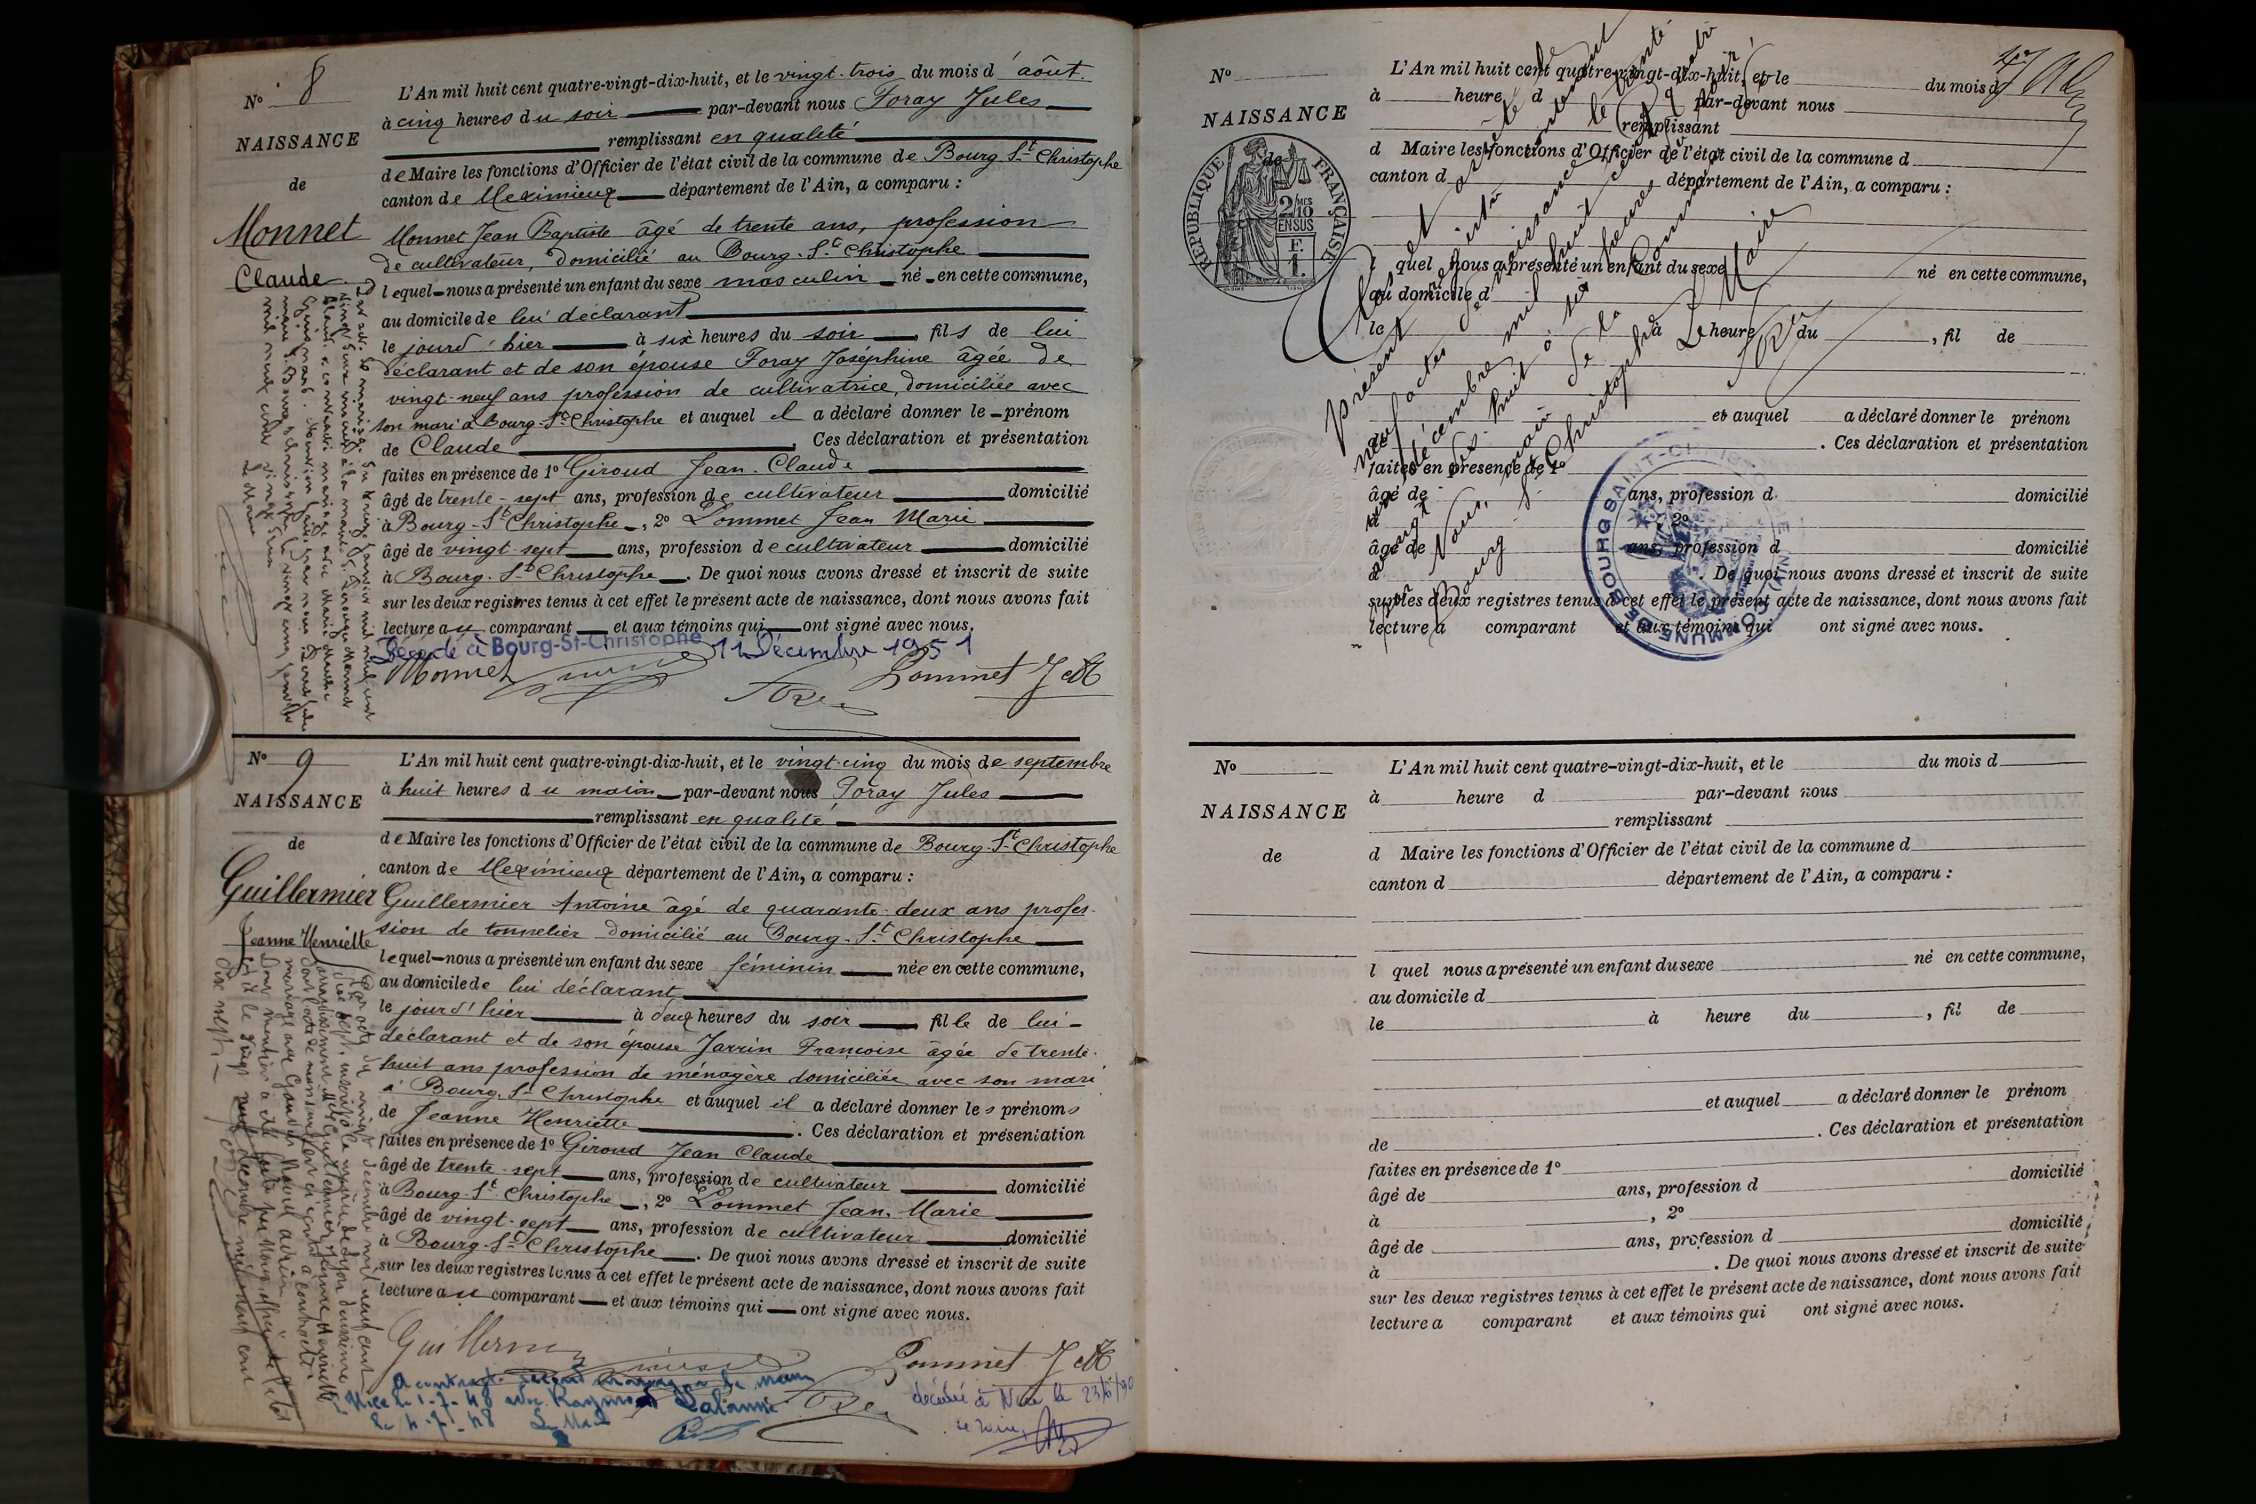 Nº 8
NAISSANCE
de
Monnet
Claude
L'An mil huit cent quatre-vingt-dix-huit, et le vingt-trois du mois d'août
à cinq heures du soir par-devant nous Foray Jules
remplissant en qualité
de Maire les fonctions d'Officier de l'état civil de la commune de Bourg-St-Christophe
canton de Meximieux département de l'Ain, a comparu :
Monnet Jean Baptiste âgé de trente ans, profession
de cultivateur, domicilié au Bourg-St-Christophe
lequel nous a présenté un enfant du sexe masculin né en cette commune,
au domicile de lui déclarant
le jour d'hier à six heures du soir, fils de lui
déclarant et de son épouse Foray Joséphine âgée de
vingt-neuf ans profession de cultivatrice, domiciliée avec
son mari à Bourg-St-Christophe et auquel il a déclaré donner le prénom
de Claude. Ces déclaration et présentation
faites en présence de 1º Giroud Jean-Claude
âgé de trente-sept ans, profession de cultivateur domicilié
à Bourg-St-Christophe, 2º Pommet Jean Marie
âgé de vingt-sept ans, profession de cultivateur domicilié
à Bourg-St-Christophe. De quoi nous avons dressé et inscrit de suite
sur les deux registres tenus à cet effet le présent acte de naissance, dont nous avons fait
lecture au comparant et aux témoins qui ont signé avec nous.
Décédé à Bourg-St-Christophe 11 Décembre 1951
Monnet Pommet J M
Nº 9
NAISSANCE
de
Guillermier
Jeanne Henriette
L'An mil huit cent quatre-vingt-dix-huit, et le vingt-cinq du mois de septembre
à huit heures du matin par-devant nous Foray Jules
remplissant en qualité
de Maire les fonctions d'Officier de l'état civil de la commune de Bourg-St-Christophe
canton de Meximieux département de l'Ain, a comparu :
Guillermier Antoine âgé de quarante-deux ans profes-
sion de tonnelier domicilié au Bourg-St-Christophe
lequel nous a présenté un enfant du sexe féminin née en cette commune,
au domicile de lui déclarant
le jour d'hier à deux heures du soir, fille de lui
déclarant et de son épouse Jarrin Françoise âgée de trente-
huit ans profession de ménagère domiciliée avec son mari
à Bourg-St-Christophe et auquel il a déclaré donner les prénoms
de Jeanne Henriette. Ces déclaration et présentation
faites en présence de 1º Giroud Jean Claude
âgé de trente-sept ans, profession de cultivateur domicilié
à Bourg-St-Christophe, 2º Pommet Jean-Marie
âgé de vingt-sept ans, profession de cultivateur domicilié
à Bourg-St-Christophe. De quoi nous avons dressé et inscrit de suite
sur les deux registres tenus à cet effet le présent acte de naissance, dont nous avons fait
lecture au comparant et aux témoins qui ont signé avec nous.
Guillermier Pommet J M
A contracté second mariage à la mairie
Nice le 1-7-48 avec Raymond Lalanne
décédée à Nice le
Nº
NAISSANCE
de
RÉPUBLIQUE FRANÇAISE
2/10 MES
EN SUS
F.
1.
L'An mil huit cent quatre-vingt-dix-huit, et le du mois d
à heure d par-devant nous
remplissant
d Maire les fonctions d'Officier de l'état civil de la commune d
canton d département de l'Ain, a comparu :
l quel nous a présenté un enfant du sexe né en cette commune,
au domicile d
le à heure du , fil de
et auquel a déclaré donner le prénom
de . Ces déclaration et présentation
faites en présence de 1º
âgé de ans, profession d domicilié
à , 2º
âgé de ans, profession d domicilié
à . De quoi nous avons dressé et inscrit de suite
sur les deux registres tenus à cet effet le présent acte de naissance, dont nous avons fait
lecture a comparant et aux témoins qui ont signé avec nous.
Clos et arrêté le
présent registre contenant
neuf actes de naissance le trente
un décembre mil huit cent quatre
vingt dix-huit à six heures du soir
par Nous, maire de la Commune de
Bourg-St-Christophe
Le Maire
COMMUNE DE BOURG SAINT-CHRISTOPHE (AIN)
Nº
NAISSANCE
de
L'An mil huit cent quatre-vingt-dix-huit, et le du mois d
à heure d par-devant nous
remplissant
d Maire les fonctions d'Officier de l'état civil de la commune d
canton d département de l'Ain, a comparu :
l quel nous a présenté un enfant du sexe né en cette commune,
au domicile d
le à heure du , fil de
et auquel a déclaré donner le prénom
de . Ces déclaration et présentation
faites en présence de 1º
âgé de ans, profession d domicilié
à , 2º
âgé de ans, profession d domicilié
à . De quoi nous avons dressé et inscrit de suite
sur les deux registres tenus à cet effet le présent acte de naissance, dont nous avons fait
lecture a comparant et aux témoins qui ont signé avec nous.